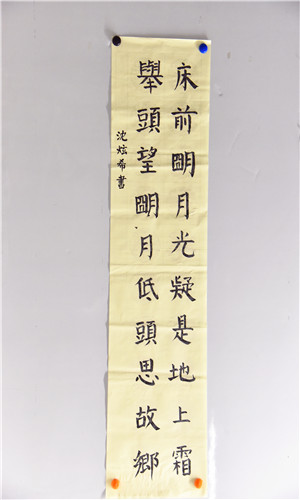 床前朙月光疑是地上霜
舉頭望朙月低頭思故鄉
沈炫希書